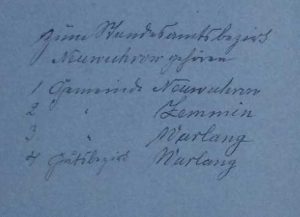 Zum Standesamtsbezirk
Neuwuhrow gehören
1 Gemeinde Neuwuhrow
2 " Zemmin
3 " Warlang
4 Gutsbezirk Warlang